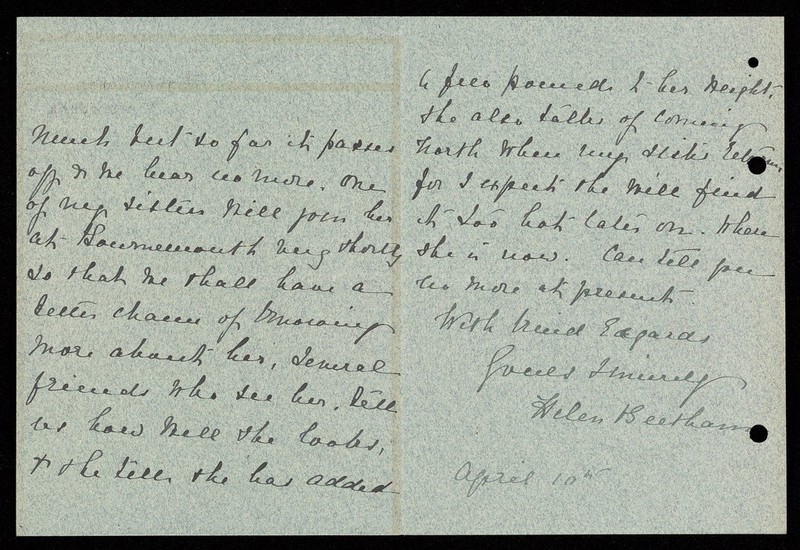 much but so far it passes
off & we hear no more. One
of my sisters will join her
at Bournemouth very shortly
so that we shall have a
better chance of knowing
more about her, several
friends who see her, tell
us how well she looks,
& she tells she has added
a few pounds to her weight.
She also talks of coming
North when my sister returns
for I expect she will find
it too hot later on. When
she is now. Can tell you
no more at present.
With kind Regards
Yours sincerely
Helen Beetham
April 10th